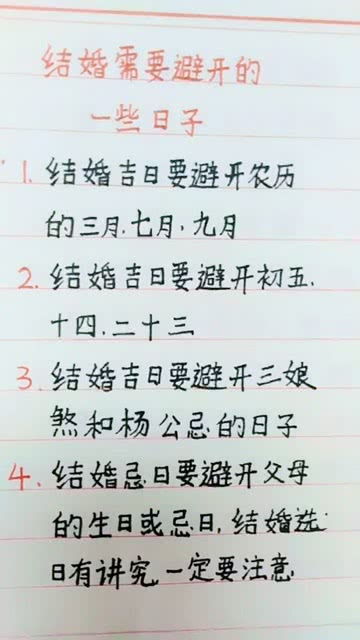 结婚需要避开的
一些日子
1. 结婚吉日要避开农历
的三月.七月.九月
2. 结婚吉日要避开初五.
十四.二十三
3. 结婚吉日要避开三娘
煞和杨公忌的日子
4. 结婚忌日要避开父母
的生日或忌日,结婚选
日有讲究,一定要注意